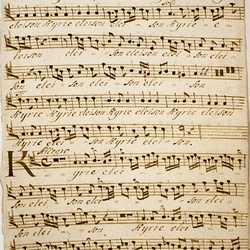 Sol
eleison Kyrie eleison elei - Son Kyrie - e
eleison elei - Son eleison elei -
Son elei - Son elei - Son
Kyrie Kyrie eleison Kyrie Kyrie eleison
Kyrie elei - Son elei - Son.
Allegro
Kyrie elei -
Son elei - Son elei -
Son elei - Son. Kyrie elei -
Son elei - Son elei -